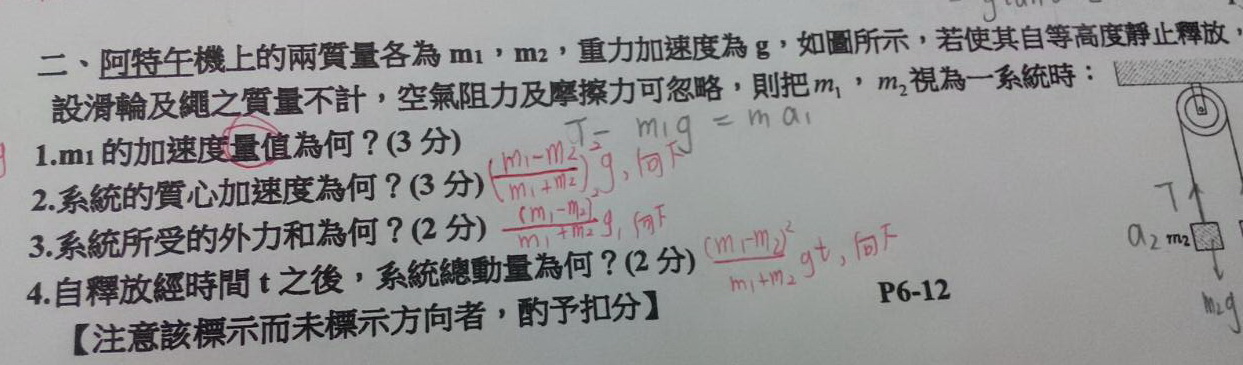 二、阿特午機上的兩質量各為 m₁，m₂，重力加速度為 g，如圖所示，若使其自等高度靜止釋放，
設滑輪及繩之質量不計，空氣阻力及摩擦力可忽略，則把 m₁，m₂ 視為一系統時：
T - m₁g = m a₁
1.m₁ 的加速度量值為何？(3 分)
2.系統的質心加速度為何？(3 分) ((m₁-m₂)/(m₁+m₂))² g, 向下
3.系統所受的外力和為何？(2 分) (m₁-m₂)²/(m₁+m₂) g, 向下
4.自釋放經時間 t 之後，系統總動量為何？(2 分) (m₁-m₂)²/(m₁+m₂) gt, 向下
【注意該標示而未標示方向者，酌予扣分】
P6-12
T
a₂ m₂
m₂g